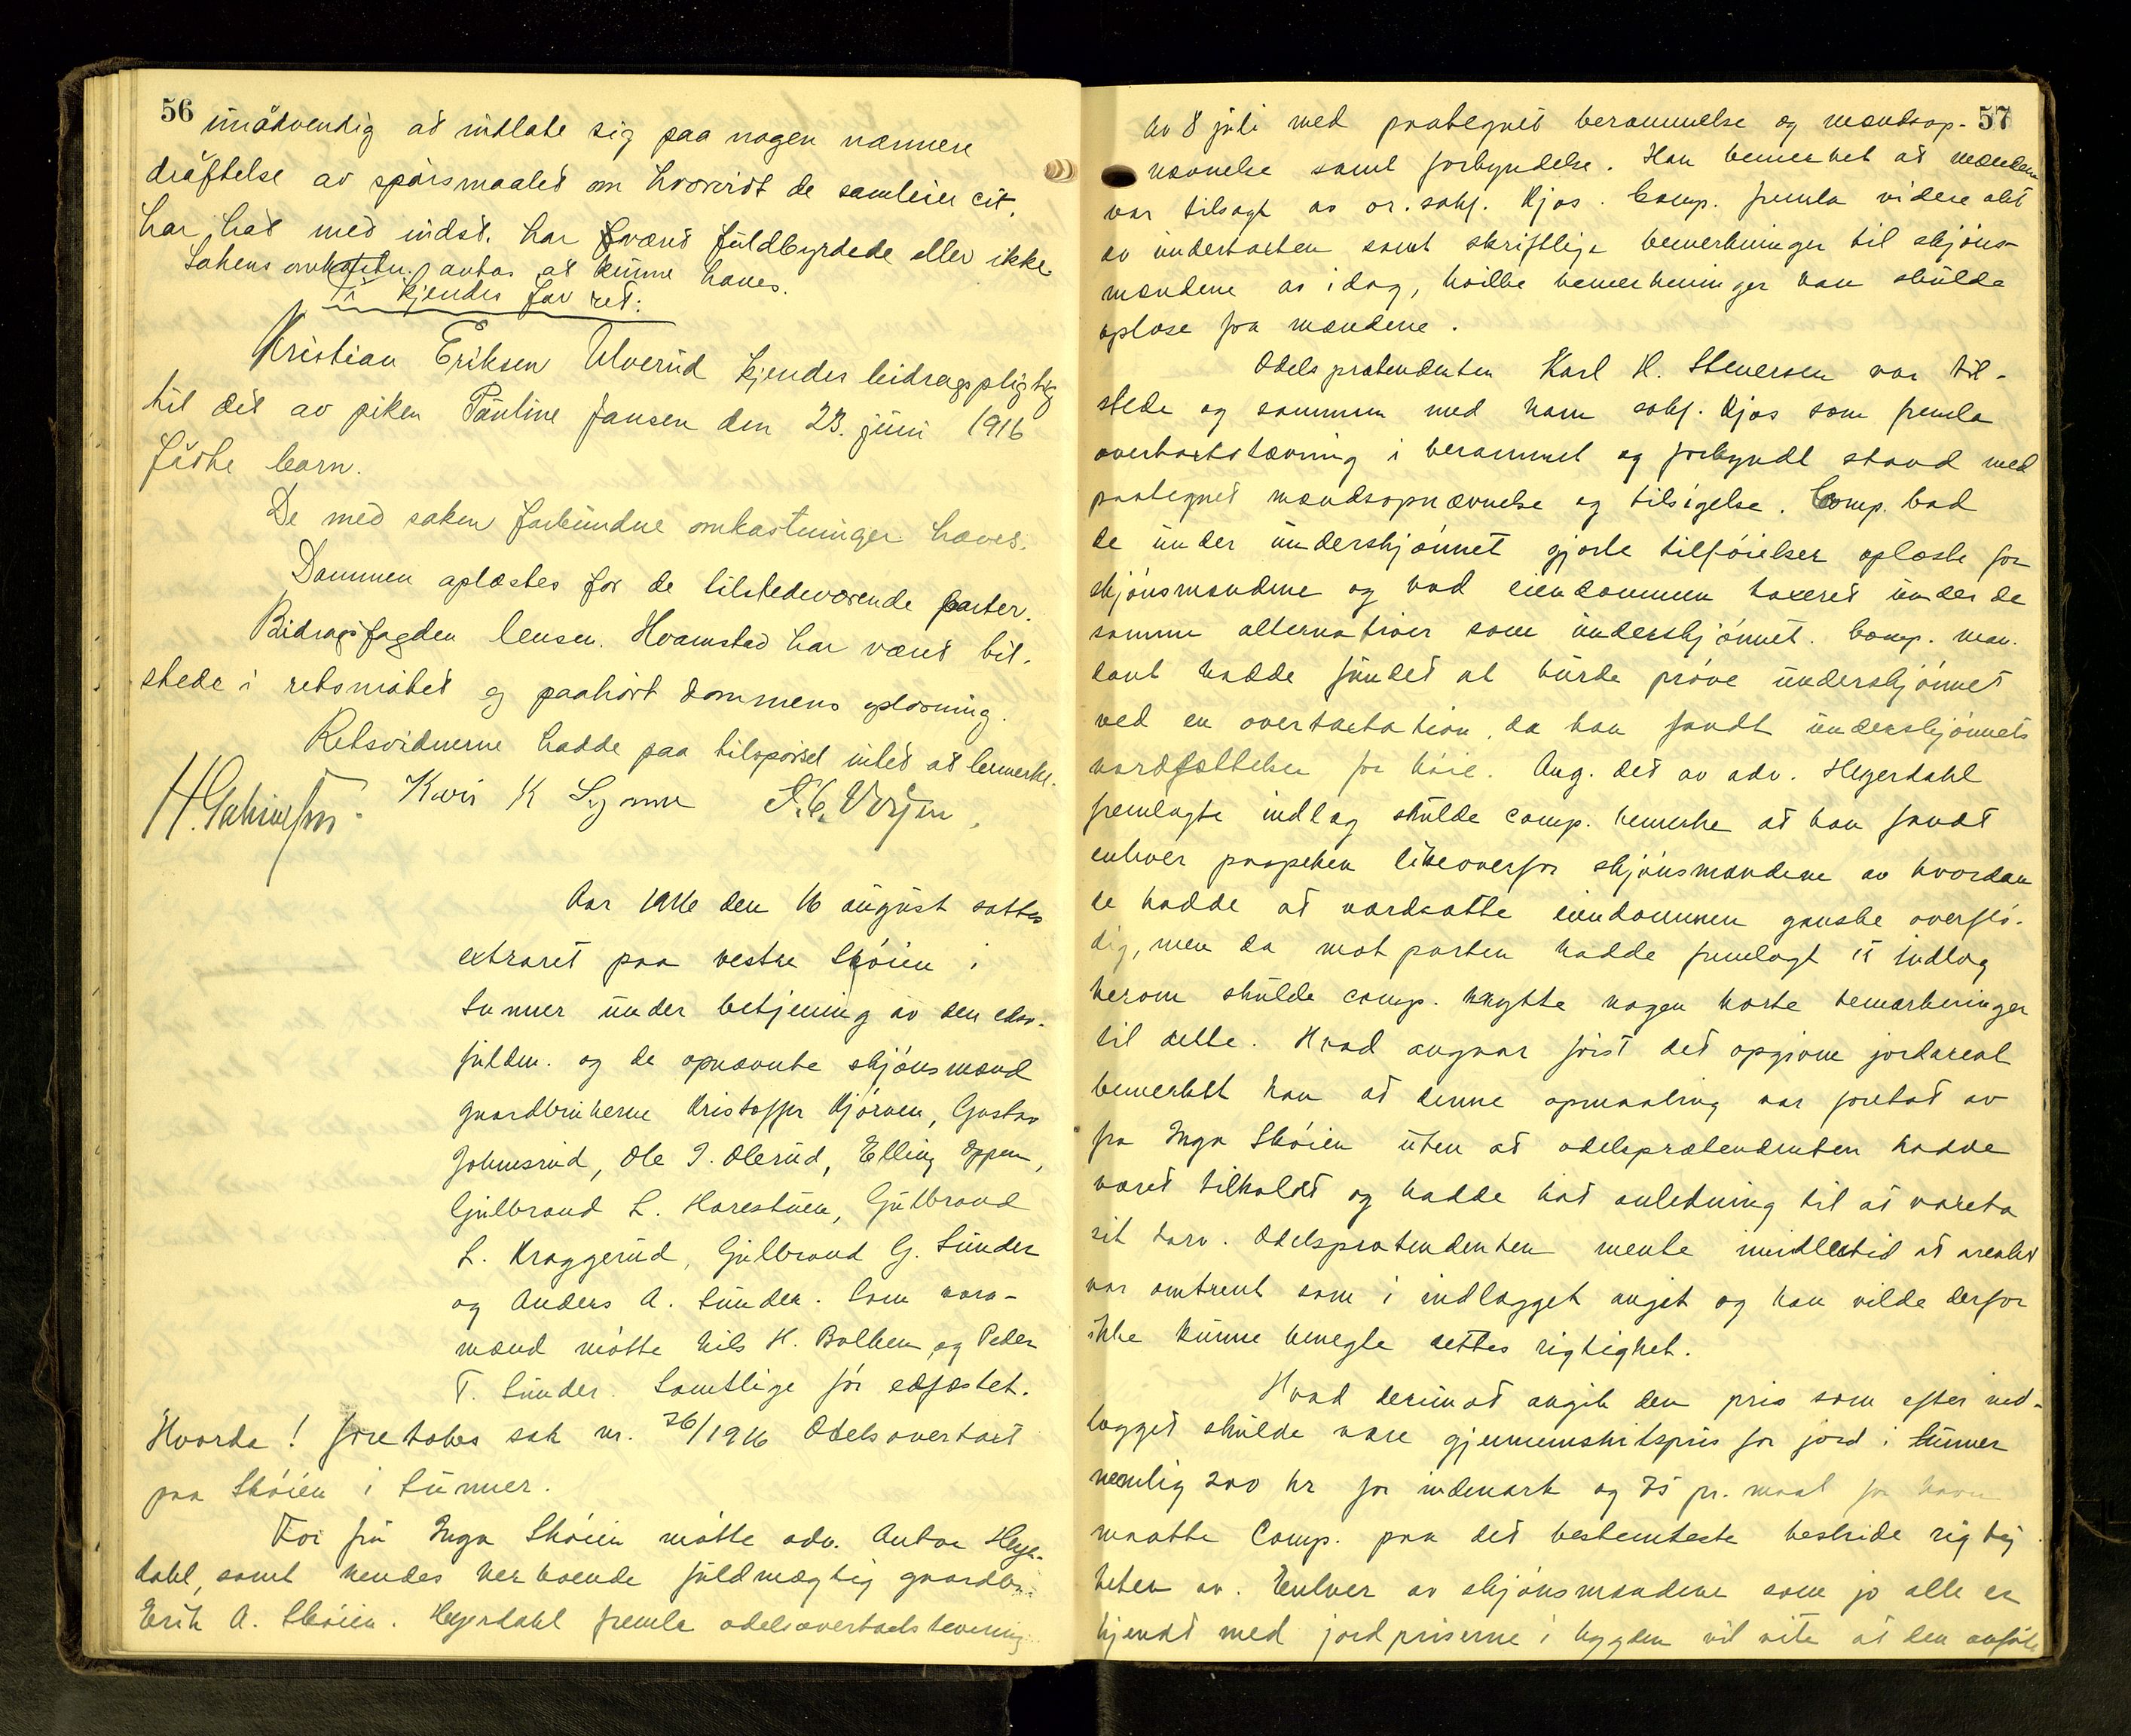 56
unödvendig at indlate sig paa nogen nærmere
dröftelse av spörsmaalet om hvorvidt de samleier cit.
har hat med indst. har været fuldbyrdede eller ikke.
Sakens omkostn. antas at kunne hæves.
Ti kjendes for ret:
Kristian Eriksen Ulverud kjendes bidragspligtig
til det av piken Pauline Jansen den 23. juni 1916
födte barn.
De med saken forbundne omkostninger hæves.
Dommen oplæstes for de tilstedeværende parter.
Bidragsfogden lensm. Hvamstad har været til-
stede i retsmötet og paahört dommens oplæsning.
Retsvidnerne hadde paa tilspörsel intet at bemerke.
Aar 1916 den 16 august sattes
extraret paa vestre Sköien i
Lunner under betjening av den edsv.
fuldm. og de opnævnte skjönsmænd
gaardbrukerne Kristoffer Kjörven, Gustav
Johnsrud, Ole I. Olerud, Elling Oppen,
Gulbrand L. Harestuen, Gulbrand
L. Kraggerud, Gulbrand G. Sünder
og Anders A. Sünder. Som vara-
mænd mötte Nils H. Bolken og Peder
T. Sünder. Samtlige för edfæstet.
Hvorda! foretokes sak nr. 26/1916 Odelsovertaxt
paa Sköien i Lunner.
For fru Inga Sköien mötte adv. Anton Heyer-
dahl, samt hendes herboende fuldmægtig gaardbr.
Erik A. Sköien. Heyerdahl fremla odelsovertakstævning
57
av 8 juli med paategnet berammelse og mændsop-
nævnelse samt forkyndelse. Han bemerket at mændene
var tilsagt av or. sakf. Kjos. Comp. fremla videre akt
av undertaxten samt skriftlige bemerkninger til skjöns-
mændene av idag, hvilke bemerkninger han skulde
oplæse for mændene.
Odelsprætendenten Karl H. Stenersen var til-
stede og sammen med ham sakf. Kjos som fremla
overtaxtstævning i berammet og forkyndt stand med
paategnet mændsopnævnelse og tilsigelse. Comp. bad
de under underskjönnet gjorte tilföielser oplæste for
skjönsmændene og bad eiendommen taxeret under de
samme alternativer som underskjönnet. Comp. man-
dant hadde fundet at burde pröve underskjönnet
ved en overtaxtation, da han fandt underskjönnets
værdsættelse for höie. Ang. det av adv. Heyerdahl
fremlagte indlæg skulde comp. bemerke at han fandt
enhver paapeken likeoverfor skjönsmændene av hvordan
de hadde at værdsætte eiendommen ganske overflö-
dig, men da motparten hadde fremlagt et indlæg
herom skulde comp. knytte nogen korte bemerkninger
til dette. Hvad angaar först det opgivne jordareal
bemerket han at denne opmaaling var foretat av
fru Inga Sköien uten at odelsprætendenten hadde
været tilkaldt og hadde hat anledning til at vareta
sit tarv. Odelsprætendenten mente imidlertid at arealet
var omtrent som i indlægget angit og han vilde derfor
ikke kunne benegte dettes rigtighet.
Hvad derimot angik den pris som efter ind-
lægget skulde være gjennemsnitspris for jord i Lunner
nemlig 200 kr for indmark og 75 pr. maal for havn
maatte Comp. paa det bestemteste bestride rigtig
heten av. Enhver av skjönsmændene som jo alle er
kjendt med jordpriserne i bygden vil vite at den anförte